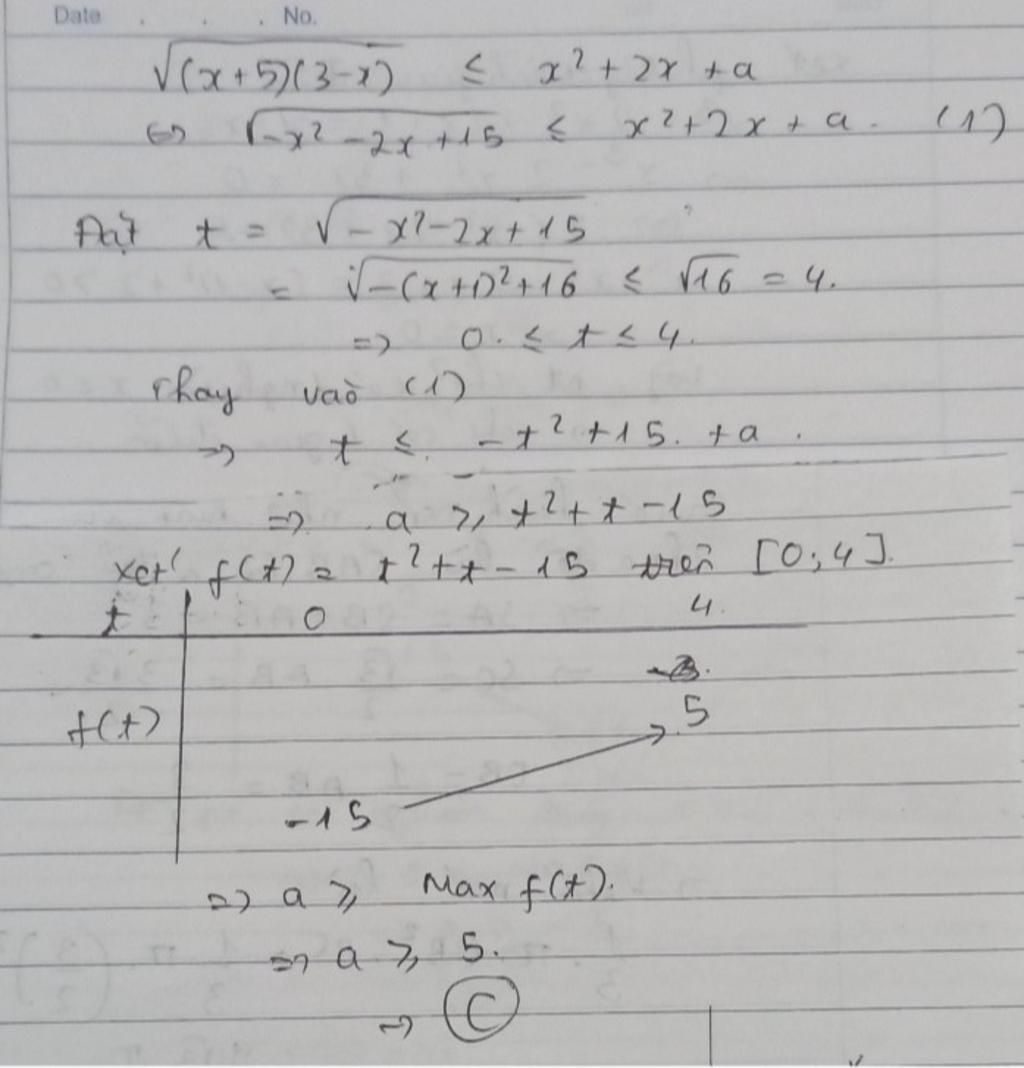 Date . . . No.
√(x+5)(3-x) ≤ x² + 2x + a
⇔ √-x² - 2x + 15 ≤ x² + 2x + a. (1)
Đặt t = √-x² - 2x + 15
= √-(x+1)² + 16 ≤ √16 = 4.
=> 0 ≤ t ≤ 4.
Thay vào (1)
=> t ≤ -t² + 15 + a.
=> a ≥ t² + t - 15
xét f(t) = t² + t - 15 trên [0;4].
t 0 4
5
f(t)
-15
=> a ≥ Max f(t).
=> a ≥ 5.
=> C